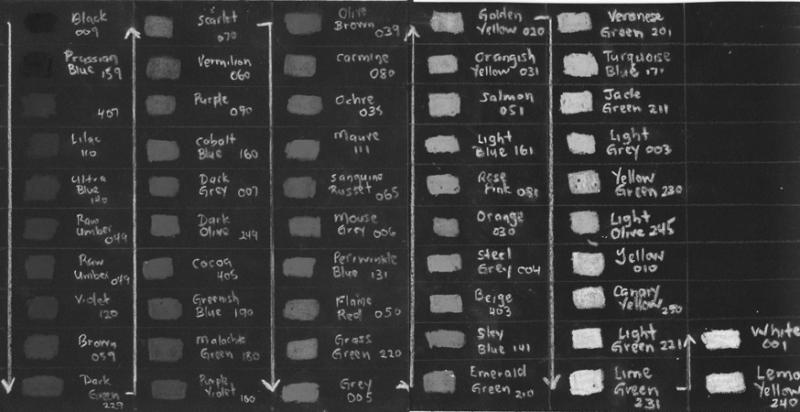 Black
009
Prussian
Blue 159
407
Lilac
110
Ultra
Blue
120
Raw
Umber
049
Raw
Umber 049
Violet
120
Brown
059
Dark
Green
229
Scarlet
070
Vermilion
060
Purple
090
Cobalt
Blue 160
Dark
Grey 007
Dark
Olive 249
Cocoa
405
Greenish
Blue 190
Malachite
Green 180
Purple
Violet 100
Olive
Brown 039
Carmine
080
Ochre
035
Mauve
111
Sanguine
Russet 065
Mouse
Grey 006
Periwinkle
Blue 131
Flame
Red 050
Grass
Green 220
Grey
005
Golden
Yellow 020
Orangish
Yellow 031
Salmon
051
Light
Blue 161
Rose
Pink 081
Orange
030
Steel
Grey 004
Beige
403
Sky
Blue 141
Emerald
Green 210
Veronese
Green 201
Turquoise
Blue 171
Jade
Green 211
Light
Grey 003
Yellow
Green 230
Light
Olive 245
Yellow
010
Canary
Yellow 250
Light
Green 221
Lime
Green
231
White
001
Lemon
Yellow
240